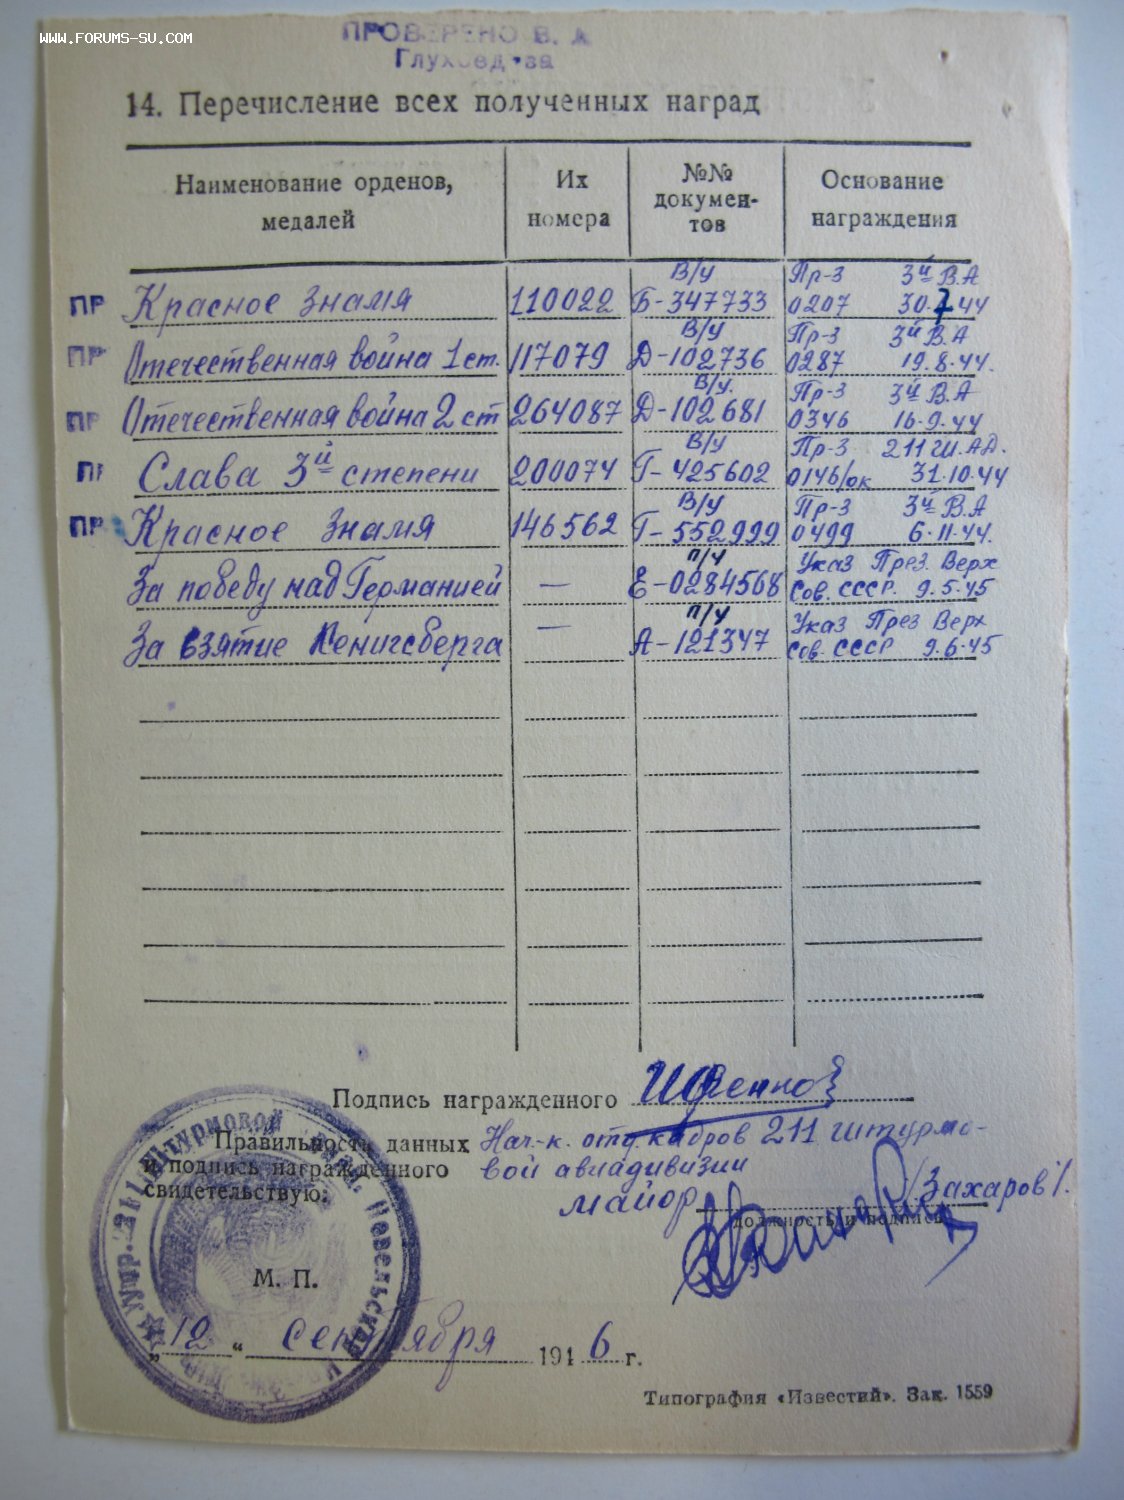 www.FORUMS-SU.COM
ПРОВЕРЕНО В. А
14. Перечисление всех полученных наград
Наименование орденов, медалей
Их номера
№№ докумен-тов
Основание награждения
В/у Пр-з 3й В.А
ПР Красное Знамя 110022 Б-347733 0207 30.7.44
В/у Пр-з 3й В.А
ПР Отечественная война 1 ст. 117079 Д-102736 0287 19.8.44.
В/у. Пр-з 3й В.А
ПР Отечественная война 2 ст 264087 Д-102681 0346 16.9.44
В/у Пр-з 211 ш.АД.
ПР Слава 3й степени 200074 Г-425602 0146/ок 31.10.44
В/у Пр-з 3й В.А
ПР Красное Знамя 146562 Г-552999 0499 6.11.44.
п/у Указ През. Верх
За победу над Германией — Е-0284568 Сов. СССР. 9.5.45
п/у Указ През Верх
За взятие Кенигсберга — А-121347 Сов. СССР 9.6.45
Подпись награжденного
Правильность данных Нач-к. отд. кадров 211 штурмо-
и подпись награжденного вой авиадивизии
свидетельствую: майор /Захаров/.
должность и подпись
М. П.
Упр. 211 Штурмовой Авиац. Невельской
„12“ сентября 1946 г.
Типография «Известий». Зак. 1559